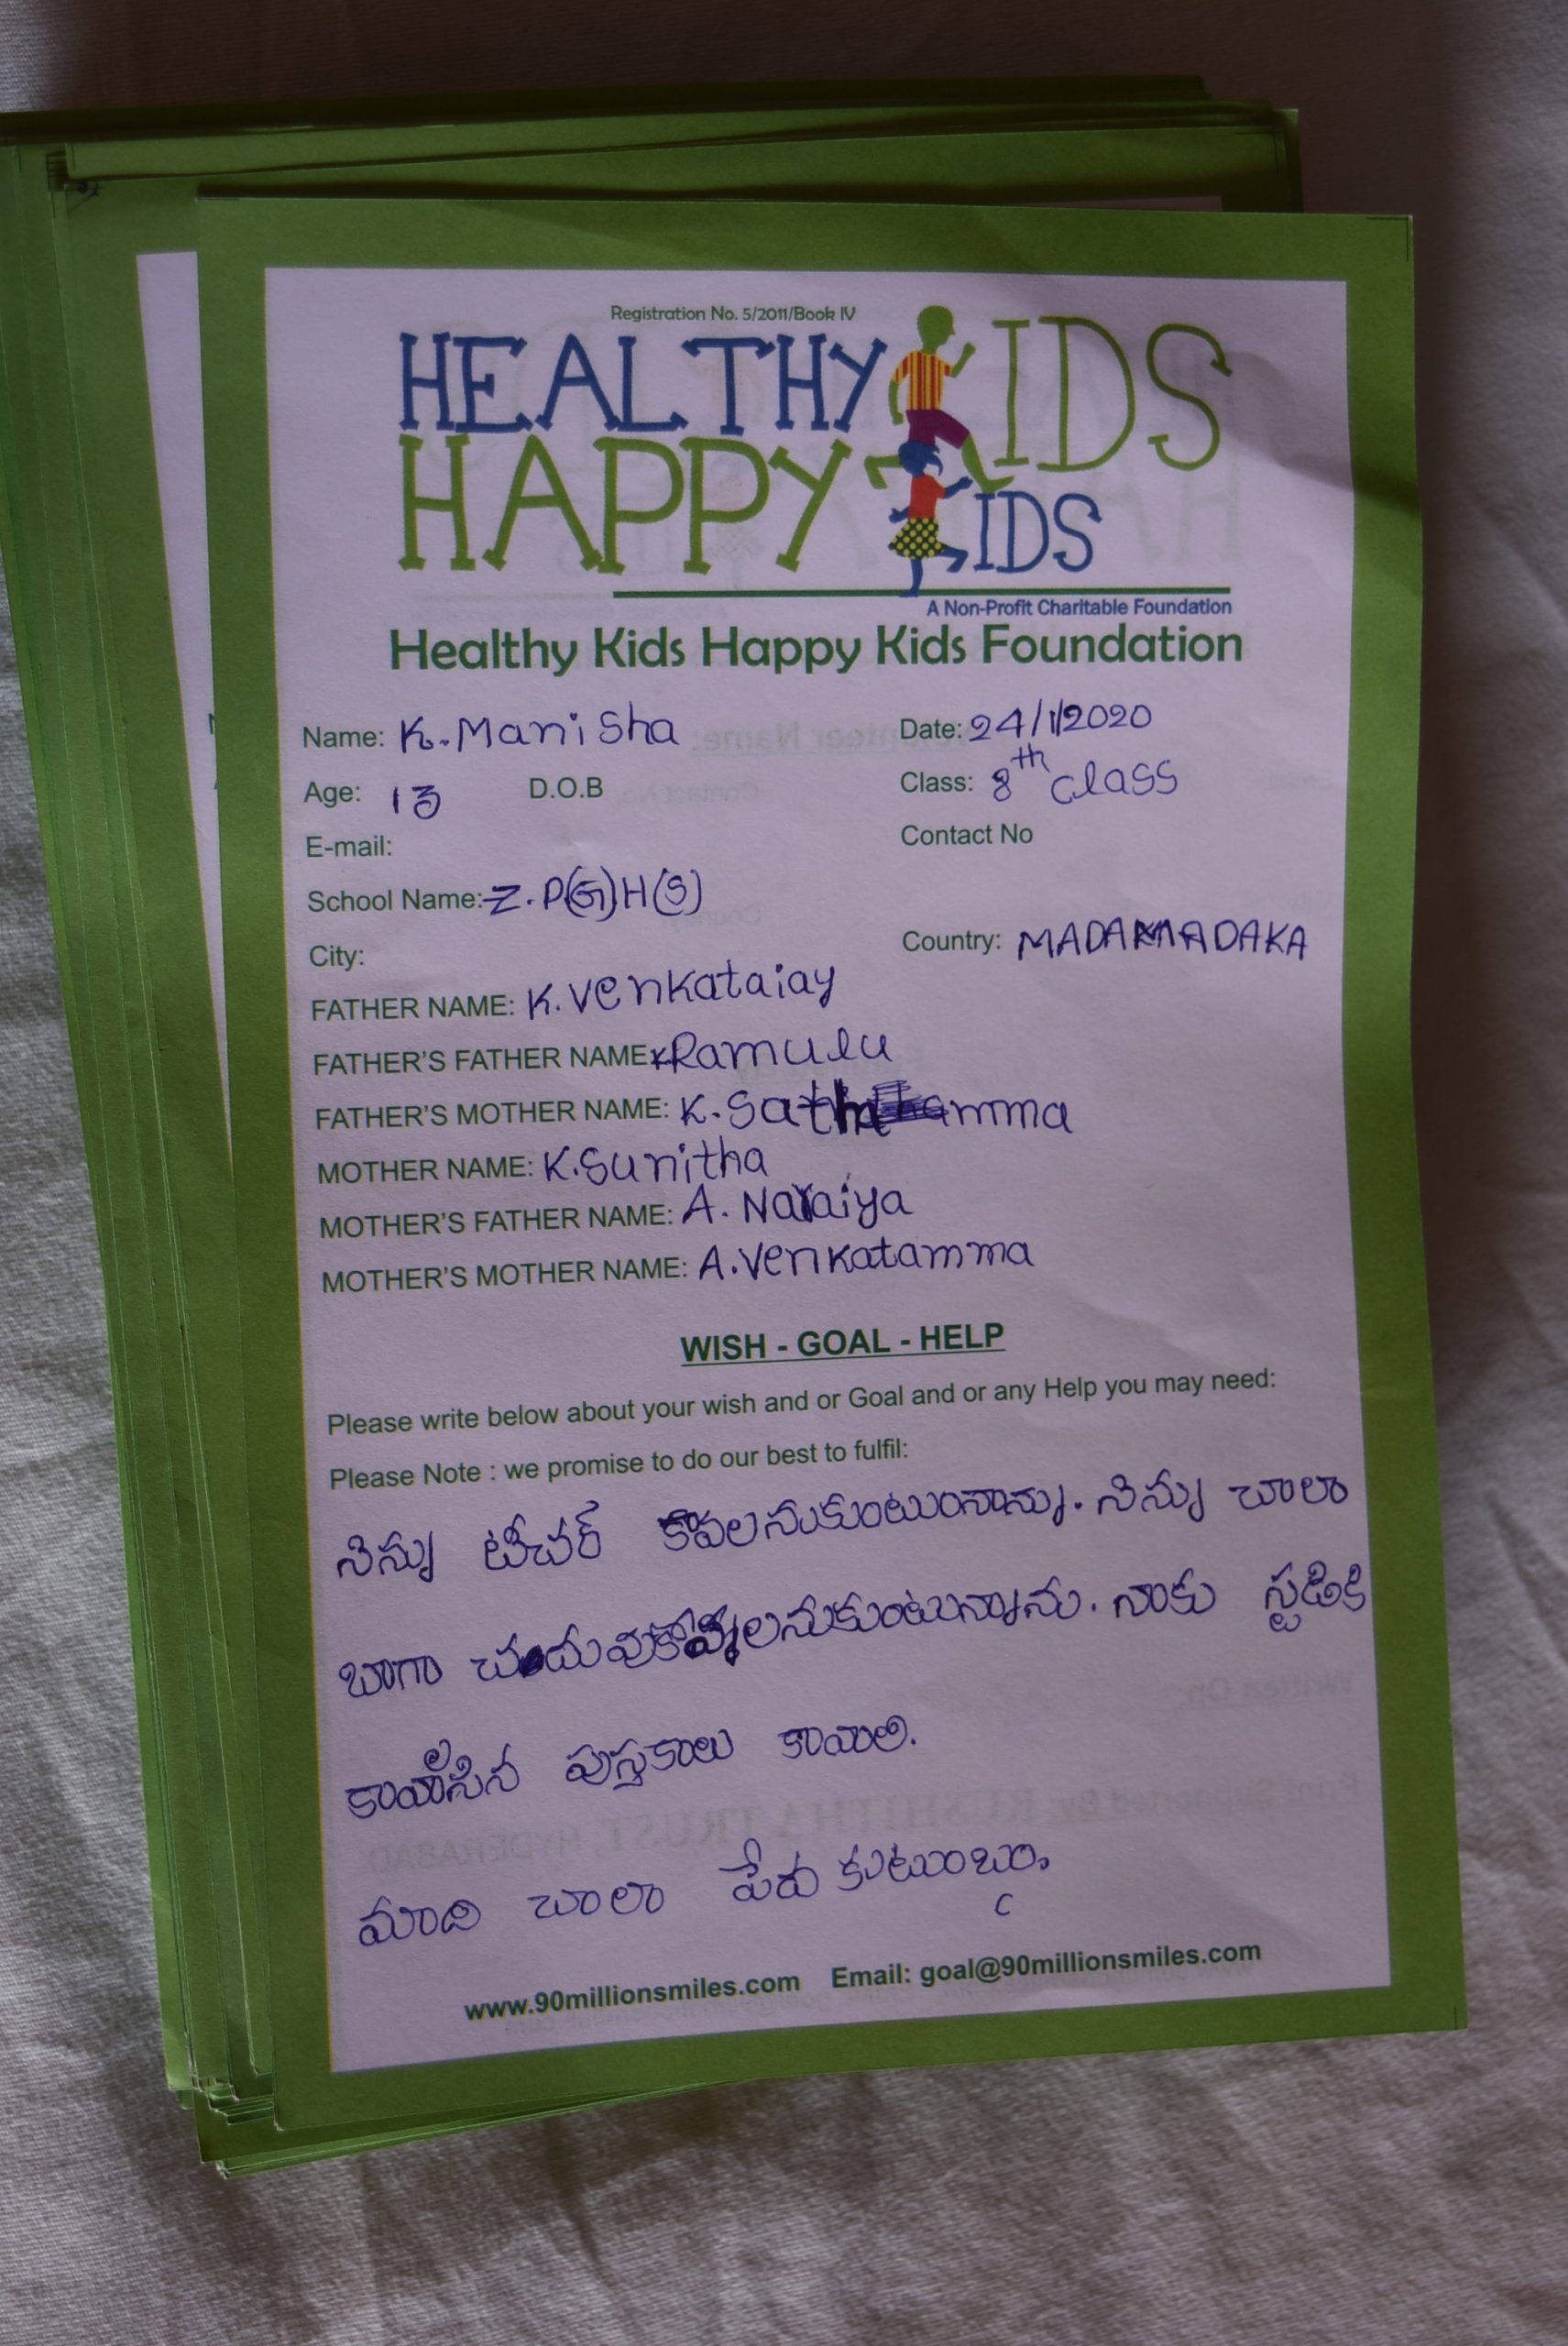 Registration No. 5/2011/Book IV
HEALTHY KIDS
HAPPY KIDS
A Non-Profit Charitable Foundation
Healthy Kids Happy Kids Foundation
Name: K. Manisha Date: 24/1/2020
Age: 13 D.O.B Class: 8th class
E-mail: Contact No
School Name: Z. P(G)H(S)
City: Country: MADAMADAKA
FATHER NAME: K. Venkataiay
FATHER'S FATHER NAME: K Ramulu
FATHER'S MOTHER NAME: K. Sathamma
MOTHER NAME: K. Sunitha
MOTHER'S FATHER NAME: A. Naraiya
MOTHER'S MOTHER NAME: A. Venkatamma
WISH - GOAL - HELP
Please write below about your wish and or Goal and or any Help you may need:
Please Note : we promise to do our best to fulfil:
నిన్ను టీచర్ కావలనుకుంటుంనాన్ను. నిన్ను చాలా
బాగా అనుకుంటున్నాను. నాకు స్టడికి
పుస్తకాలు కావాలి.
మాది చాలా పేరు కుటుంబం.
www.90millionsmiles.com Email: goal@90millionsmiles.com